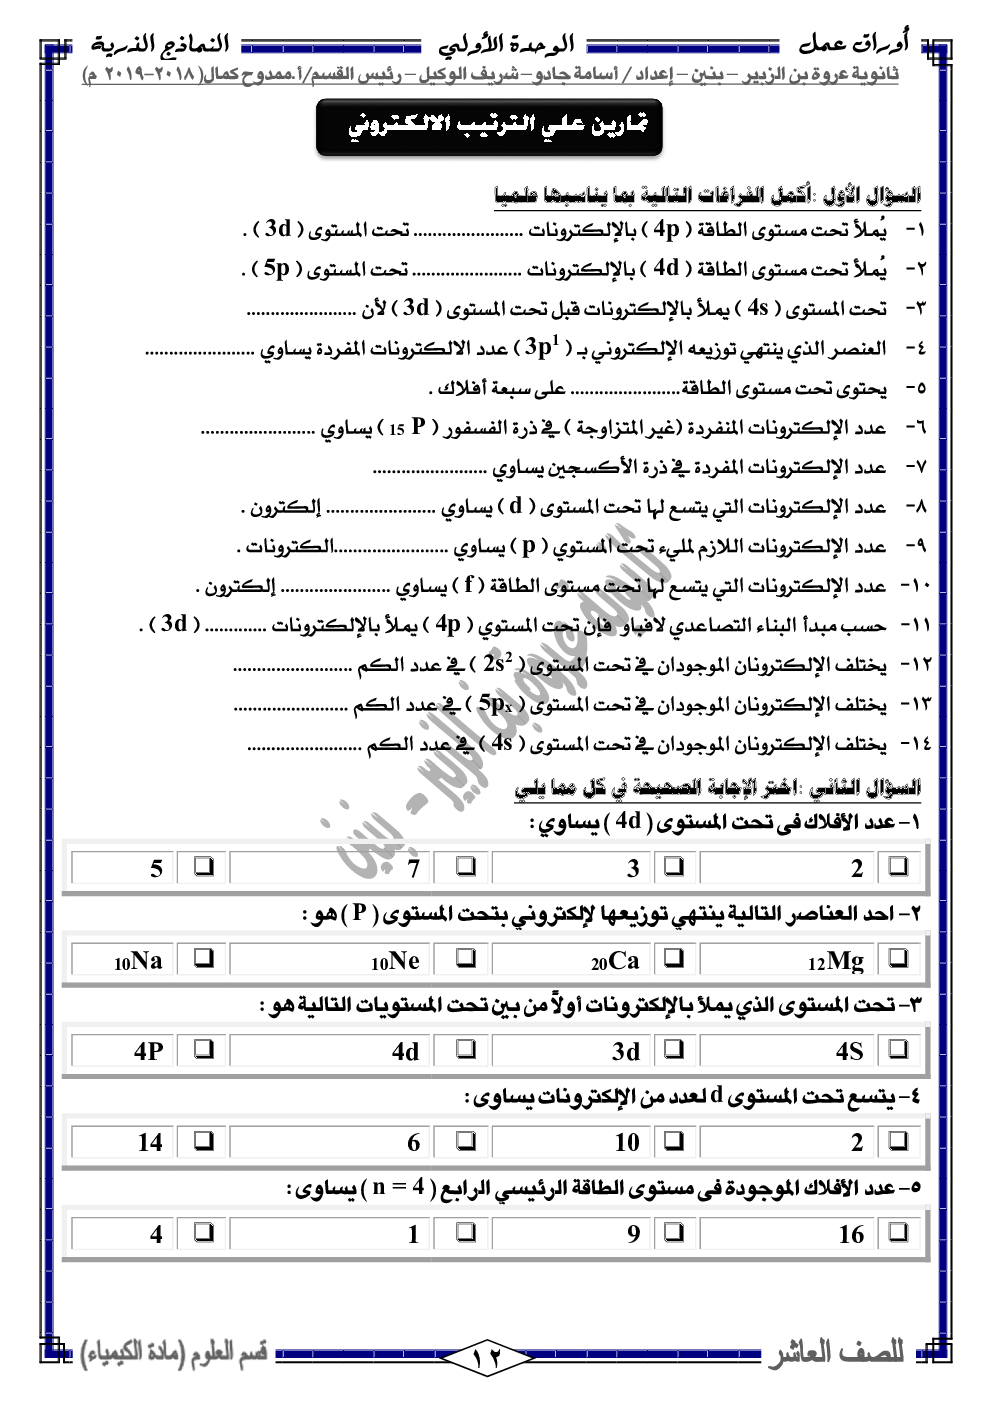 أوراق عمل الوحدة الأولي النماذج الذرية
ثانوية عروة بن الزبير – بنين – إعداد / أسامة جادو – شريف الوكيل – رئيس القسم/أ.ممدوح كمال( ٢٠١٨-٢٠١٩ م)
تمارين علي الترتيب الالكتروني
السؤال الأول :أكمل الفراغات التالية بما يناسبها علميا
١- يُملأ تحت مستوى الطاقة ( 4p ) بالإلكترونات ....................... تحت المستوى ( 3d ) .
٢- يُملأ تحت مستوى الطاقة ( 4d ) بالإلكترونات ....................... تحت المستوى ( 5p ) .
٣- تحت المستوى ( 4s ) يملأ بالإلكترونات قبل تحت المستوى ( 3d ) لأن .......................
٤- العنصر الذي ينتهي توزيعه الإلكتروني بـ ( 3p¹ ) عدد الالكترونات المفردة يساوي .......................
٥- يحتوى تحت مستوى الطاقة....................... على سبعة أفلاك .
٦- عدد الإلكترونات المنفردة (غير المتزاوجة ) في ذرة الفسفور ( ₁₅ P ) يساوي .......................
٧- عدد الإلكترونات المفردة في ذرة الأكسجين يساوي .......................
٨- عدد الإلكترونات التي يتسع لها تحت المستوى ( d ) يساوي ....................... إلكترون .
٩- عدد الإلكترونات اللازم لمليء تحت المستوي ( p ) يساوي .......................الكترونات .
١٠- عدد الإلكترونات التي يتسع لها تحت مستوى الطاقة ( f ) يساوي ....................... إلكترون .
١١- حسب مبدأ البناء التصاعدي لافباو فإن تحت المستوي ( 4p ) يملأ بالإلكترونات ............. ( 3d ) .
١٢- يختلف الإلكترونان الموجودان في تحت المستوى ( 2s² ) في عدد الكم .......................
١٣- يختلف الإلكترونان الموجودان في تحت المستوى ( 5pₓ ) في عدد الكم .......................
١٤- يختلف الإلكترونان الموجودان في تحت المستوى ( 4s ) في عدد الكم .......................
ثانوية عروة بن الزبير - بنين
السؤال الثاني :اختر الإجابة الصحيحة في كل مما يلي
١- عدد الأفلاك فى تحت المستوى ( 4d ) يساوي:
❑ 2 ❑ 3 ❑ 7 ❑ 5
٢- احد العناصر التالية ينتهي توزيعها لإلكتروني بتحت المستوى ( P ) هو :
❑ ₁₂Mg ❑ ₂₀Ca ❑ ₁₀Ne ❑ ₁₀Na
٣- تحت المستوى الذي يملأ بالإلكترونات أولاً من بين تحت المستويات التالية هو :
❑ 4S ❑ 3d ❑ 4d ❑ 4P
٤- يتسع تحت المستوى d لعدد من الإلكترونات يساوى:
❑ 2 ❑ 10 ❑ 6 ❑ 14
٥- عدد الأفلاك الموجودة فى مستوى الطاقة الرئيسي الرابع ( n = 4 ) يساوى:
❑ 16 ❑ 9 ❑ 1 ❑ 4
للصف العاشر ١٢ قسم العلوم (مادة الكيمياء)